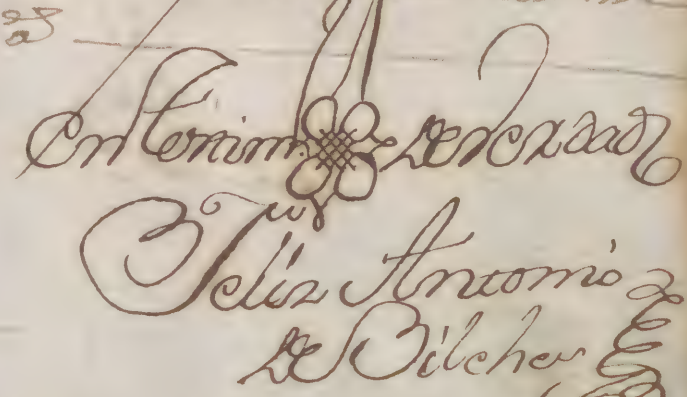 en testim.º de verdad
Feliz Antonio
de Bilches